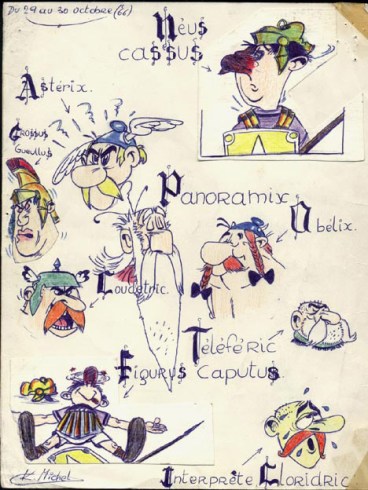 Du 29 au 30 octobre (66)
Néus
cassus
Astérix.
Crossus
Gueullus
Panoramix
Obélix.
Cloudetric.
Téléféric
Figurus Caputus.
K. Michel
Interprète Cloridric